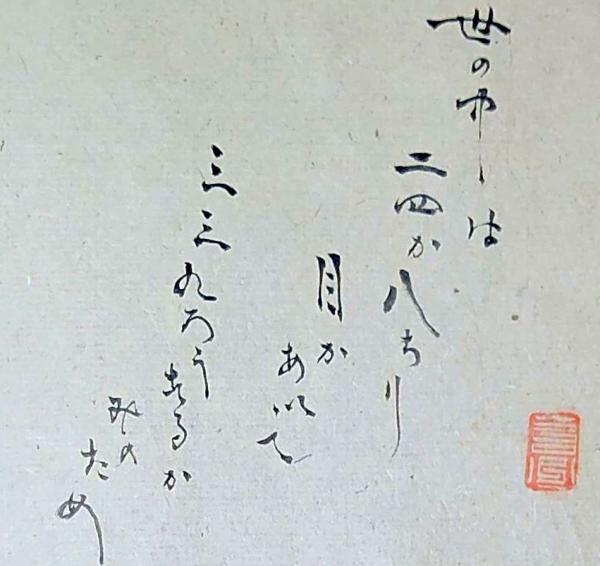 世の中は
二四か八なり
目か
あいて
三三九ろう
するか
みの
ため